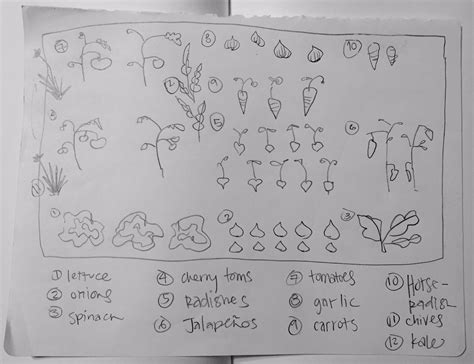 ⑦ ⑧ ⑩
⑫ ⑨
③ ⑤ ⑥
⑪
① ② ③
① lettuce ④ cherry toms ⑦ tomatoes ⑩ Horse-
② onions ⑤ Radishes ⑧ garlic radish
③ spinach ⑥ Jalapeños ⑨ carrots ⑪ chives
⑫ kale